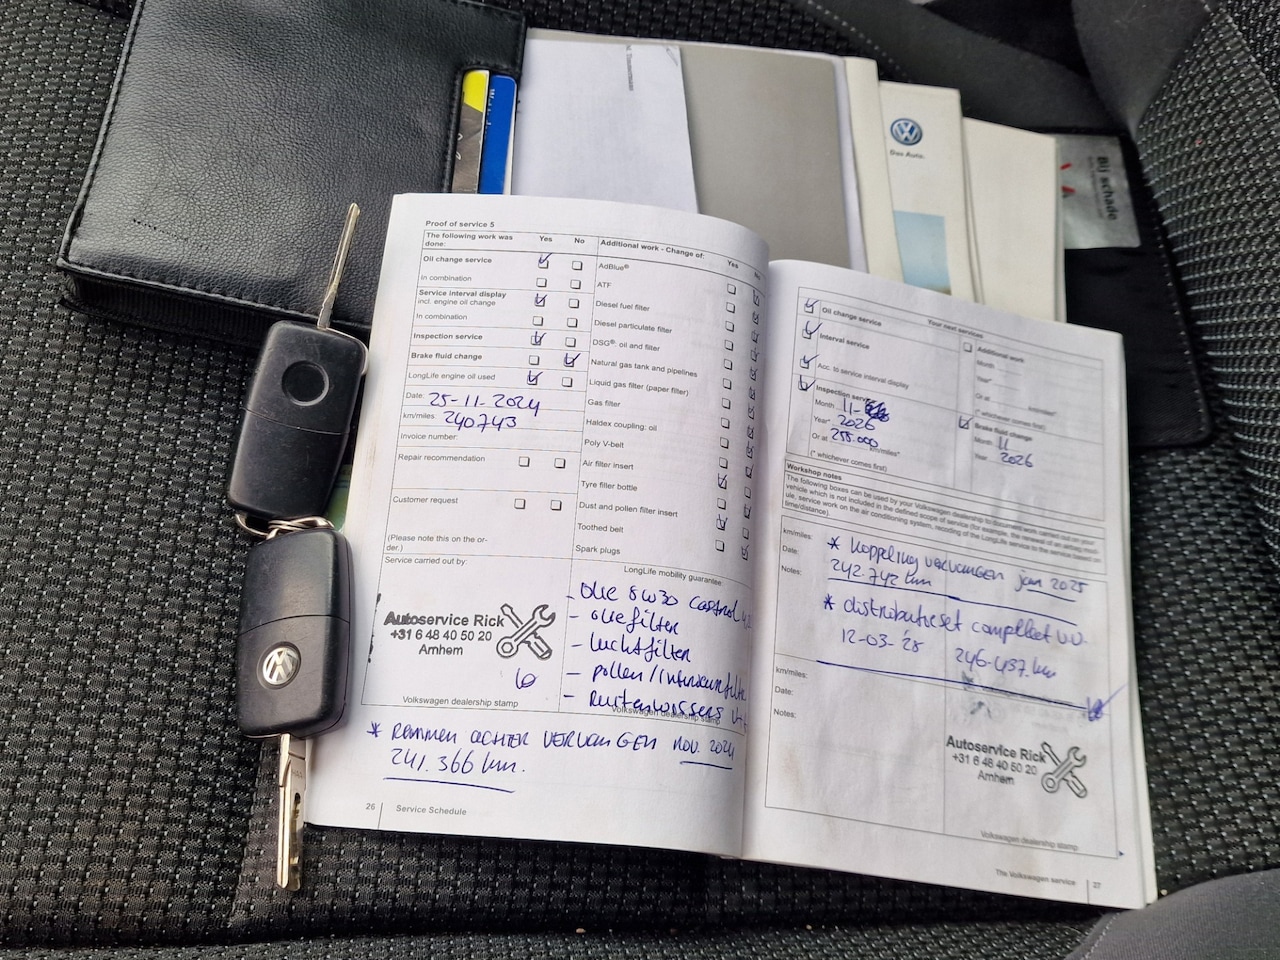 Das Auto.
Bij schade
Proof of service 5
The following work was done:
Yes
No
Oil change service
In combination
Service interval display
incl. engine oil change
In combination
Inspection service
Brake fluid change
LongLife engine oil used
Date: 25-11-2024
km/miles: 240743
Invoice number:
Repair recommendation
Customer request
(Please note this on the or-
der.)
Service carried out by:
Autoservice Rick
+31 6 48 40 50 20
Arnhem
Volkswagen dealership stamp
Additional work - Change of:
Yes
No
AdBlue®
ATF
Diesel fuel filter
Diesel particulate filter
DSG®: oil and filter
Natural gas tank and pipelines
Liquid gas filter (paper filter)
Gas filter
Haldex coupling: oil
Poly V-belt
Air filter insert
Tyre filler bottle
Dust and pollen filter insert
Toothed belt
Spark plugs
LongLife mobility guarantee
- Olie 5w30 castrol
- oliefilter
- luchtfilter
- pollen/interieurfilter
- Ruitenwissers
Volkswagen dealership stamp
* Remmen achter vervangen nov. 2024
241.366 km.
26
Service Schedule
Your next services
Oil change service
Interval service
Acc. to service interval display
Inspection service
Month 11-
Year* 2026
Or at 255.000 km/miles*
(* whichever comes first)
Additional work
Month
Year*
Or at km/miles*
(* whichever comes first)
Brake fluid change
Month 11
Year 2026
Workshop notes
The following boxes can be used by your Volkswagen dealership to document work carried out on your
vehicle which is not included in the defined scope of service (for example, the renewal of an
service work on the air conditioning system, recording of the LongLife service to the service
time/distance).
km/miles:
Date:
Notes:
* Koppeling vervangen jan 2025
242.742 km
* distributieset compleet v.v.
12-03-'25
246.437 km
km/miles:
Date:
Notes:
Autoservice Rick
+31 6 48 40 50 20
Arnhem
Volkswagen dealership stamp
The Volkswagen service
27